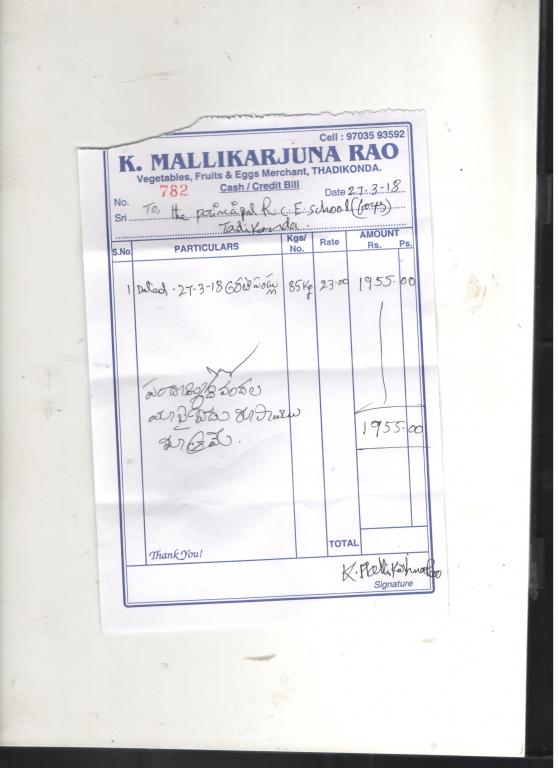 Cell : 97035 93592
K. MALLIKARJUNA RAO
Vegetables, Fruits & Eggs Merchant, THADIKONDA.
No. 782 Cash / Credit Bill Date 27-3-18
Sri To, the Principal R.C.E School (Boys)
Tadikonda
S.No. PARTICULARS Kgs/ No. Rate AMOUNT Rs. Ps.
1 Dated - 27-3-18 85Kg 23.00 1955.00
1955.00
TOTAL
Thank You!
K. Mallikarjuna Rao
Signature